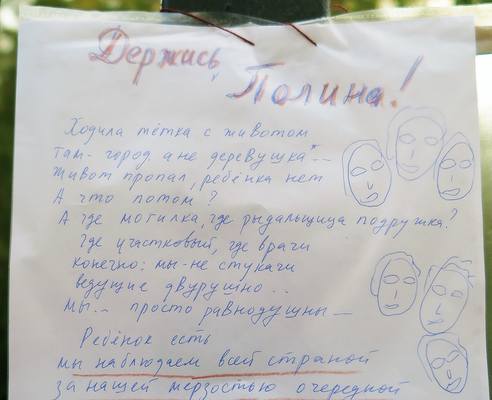 Держись,
Полина!
Ходила тётка с животом
Там - город, а не деревушка...
Живот пропал, ребёнка нет
А что потом?
А где могилка, где рыдальщица подружка?
Где участковый, где врачи
Конечно: мы - не стукачи
ведущие двурушно..
Мы... просто равнодушны —
Ребёнок есть
мы наблюдаем всей страной
за нашей мерзостью очередной